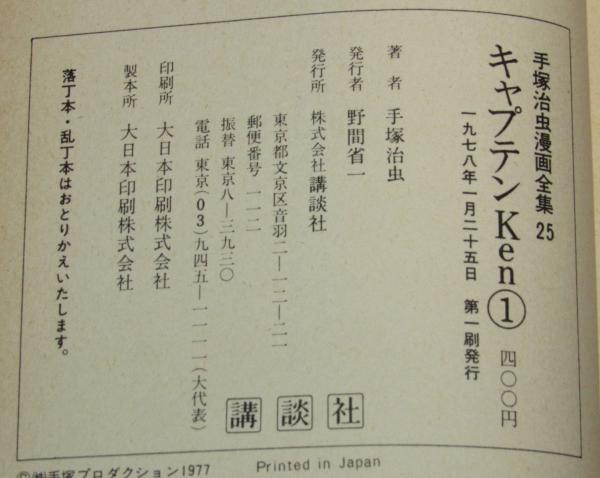 手塚治虫漫画全集 25
キャプテンKen① 四〇〇円
一九七八年一月二十五日 第一刷発行
著者 手塚治虫
発行者 野間省一
発行所 株式会社講談社
東京都文京区音羽二―一二―二一
郵便番号 一一二
振替 東京八―三九三〇
電話 東京(03)九四五―一一一一(大代表)
印刷所 大日本印刷株式会社
製本所 大日本印刷株式会社
落丁本・乱丁本はおとりかえいたします。
講談社
©㈱手塚プロダクション1977
Printed in Japan